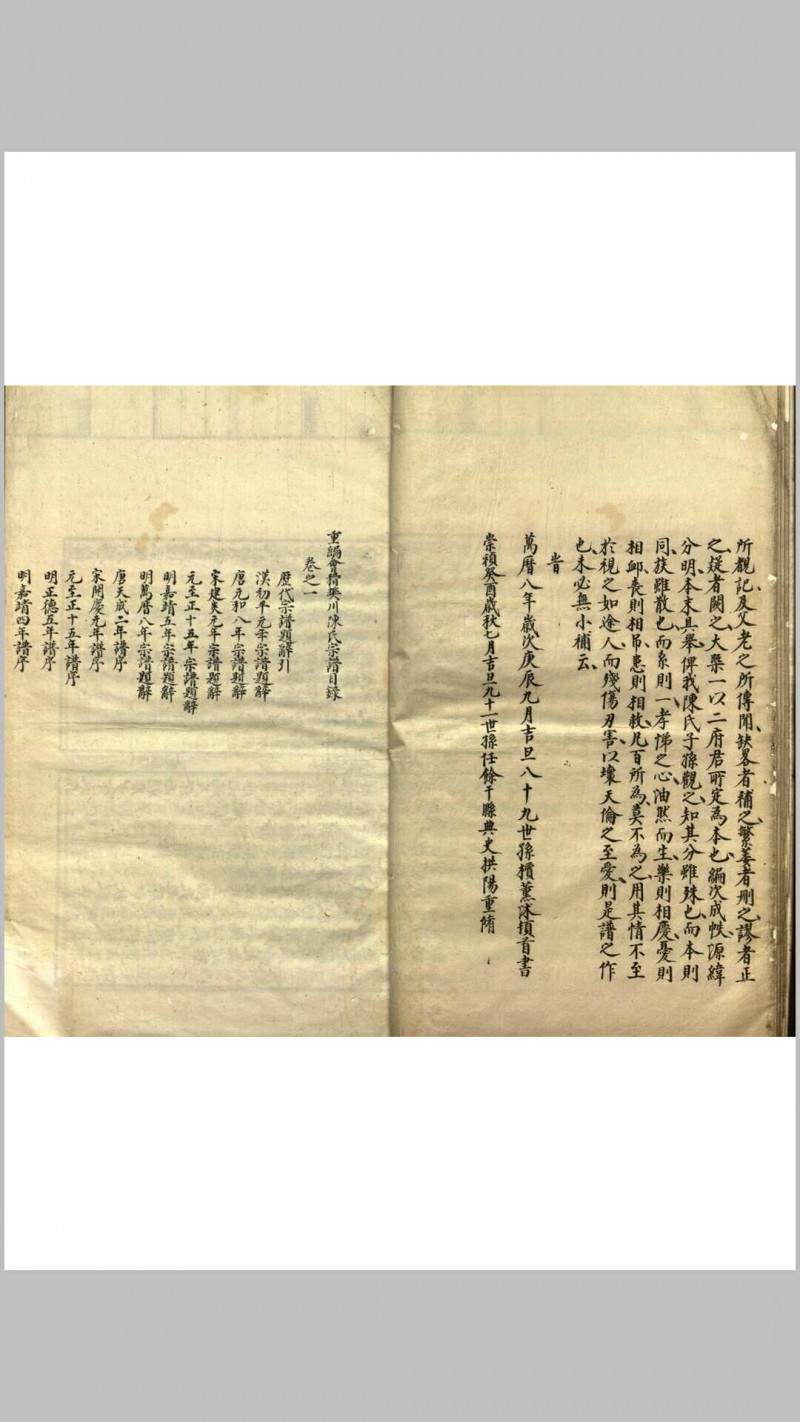 所覩記及父老之所傳聞缺畧者補之繁蕪者刪之謬者正
之疑者闕之大槩一以二府君所定為本也編次成帙源緯
分明本末具舉俾我陳氏子孫觀之知其分雖殊也而本則
同扶雖散也而系則一孝悌之心油然而生樂則相慶憂則
相邮喪則相吊患則相救凡百所為莫不為之用其情不至
於視之如途人而殘傷刃害以壞天倫之至愛則是譜之作
也未必無小補云
旹
萬曆八年歲次庚辰九月吉旦八十九世孫檟薰沐頓首書
崇禎癸酉歲秋七月吉旦九十一世孫任餘干縣典史拱陽重脩
重編會稽英川陳氏宗譜目錄
卷之一
歷代宗譜題辭引
漢初平元年宗譜題辭
唐元和八年宗譜題辭
宋建炎元年宗譜題辭
元至正十五年宗譜題辭
明嘉靖五年宗譜題辭
明萬曆八年宗譜題辭
唐天成二年譜序
宋開慶元年譜序
元至正十五年譜序
明正德五年譜序
明嘉靖四年譜序